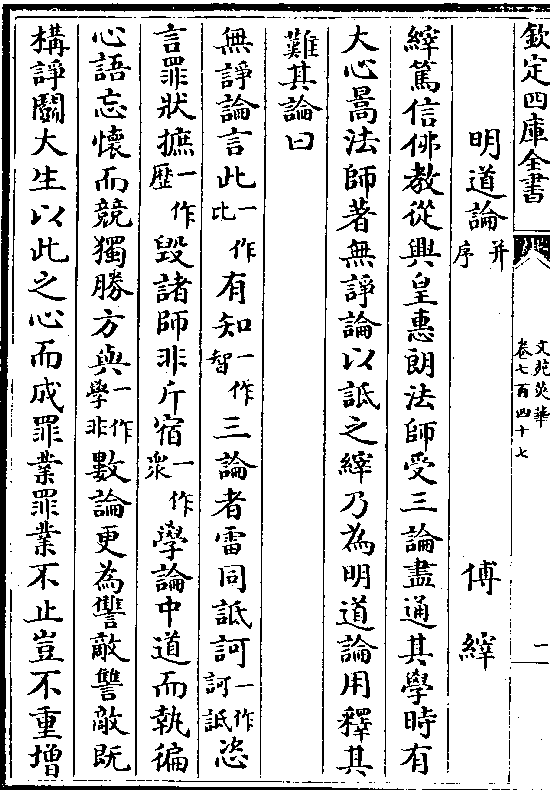 欽定四庫全書
文苑英華
卷七百四十七
二
明道論并序　傅縡
縡篤信佛教從興皇惠朗法師受三論盡通其學時有
大心暠法師著無諍論以詆之縡乃為明道論用釋其
難其論曰
無諍論言此一作比有知一作智三論者雷同詆訶一作訶詆恣
言罪狀摭一作歷毀諸師非斤宿一作衆學論中道而執徧
心語忘懷而競獨勝方與一作學非數論更為讐敵讐敵既
構諍鬭大生以此之心而成罪業罪業不止豈不重增